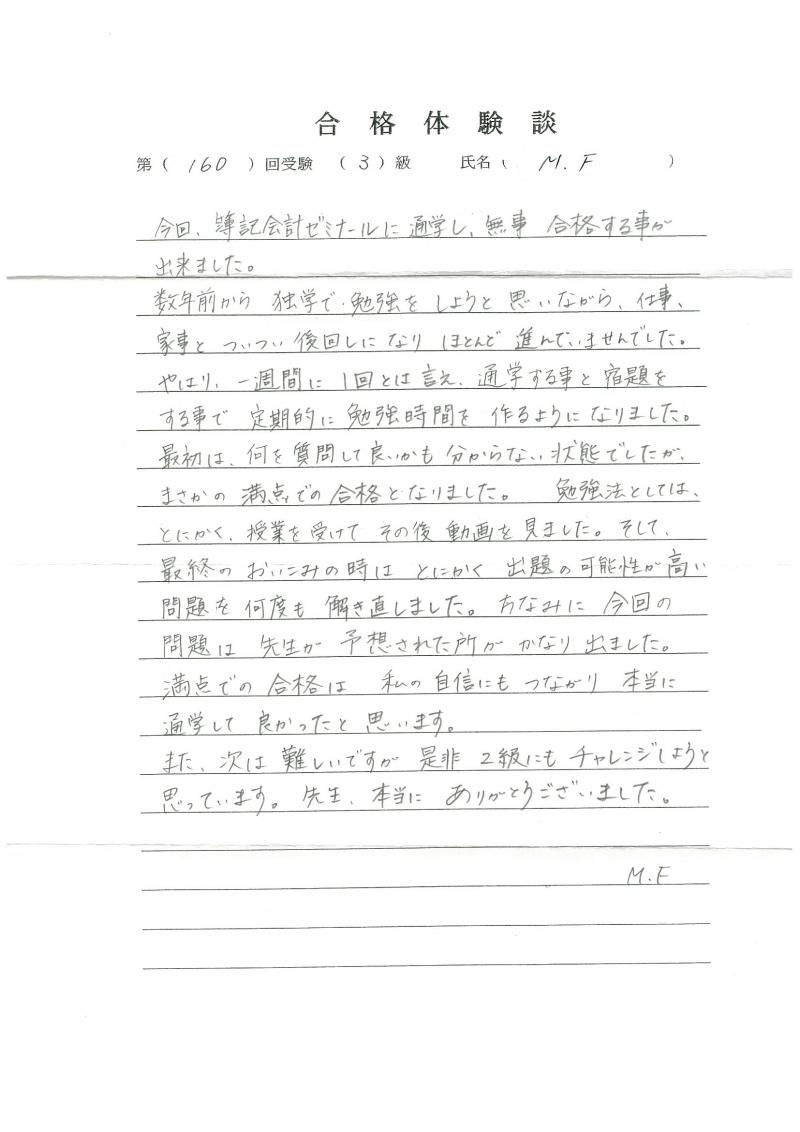 合格体験談
第（ 160 ）回受験 （ 3 ）級 氏名（ M.F ）
今回、簿記会計ゼミナールに通学し、無事 合格する事が
出来ました。
数年前から 独学で勉強を しようと 思いながら、仕事、
家事と ついつい 後回しになり ほとんど 進んでいませんでした。
やはり、一週間に 1回とは言え、通学する事と 宿題を
する事で 定期的に 勉強時間を 作るようになりました。
最初は、何を質問して良いかも 分からない状態でしたが、
まさかの 満点での合格となりました。 勉強法としては、
とにかく、授業を受けて その後 動画を見ました。そして、
最終の おいこみの時は とにかく 出題の可能性が高い
問題を 何度も 解き直しました。ちなみに 今回の
問題は 先生が 予想された所が かなり 出ました。
満点での 合格は 私の自信にも つながり 本当に
通学して 良かったと 思います。
また、次は 難しいですが 是非 2級にも チャレンジしようと
思っています。先生、本当に ありがとうございました。
M.F